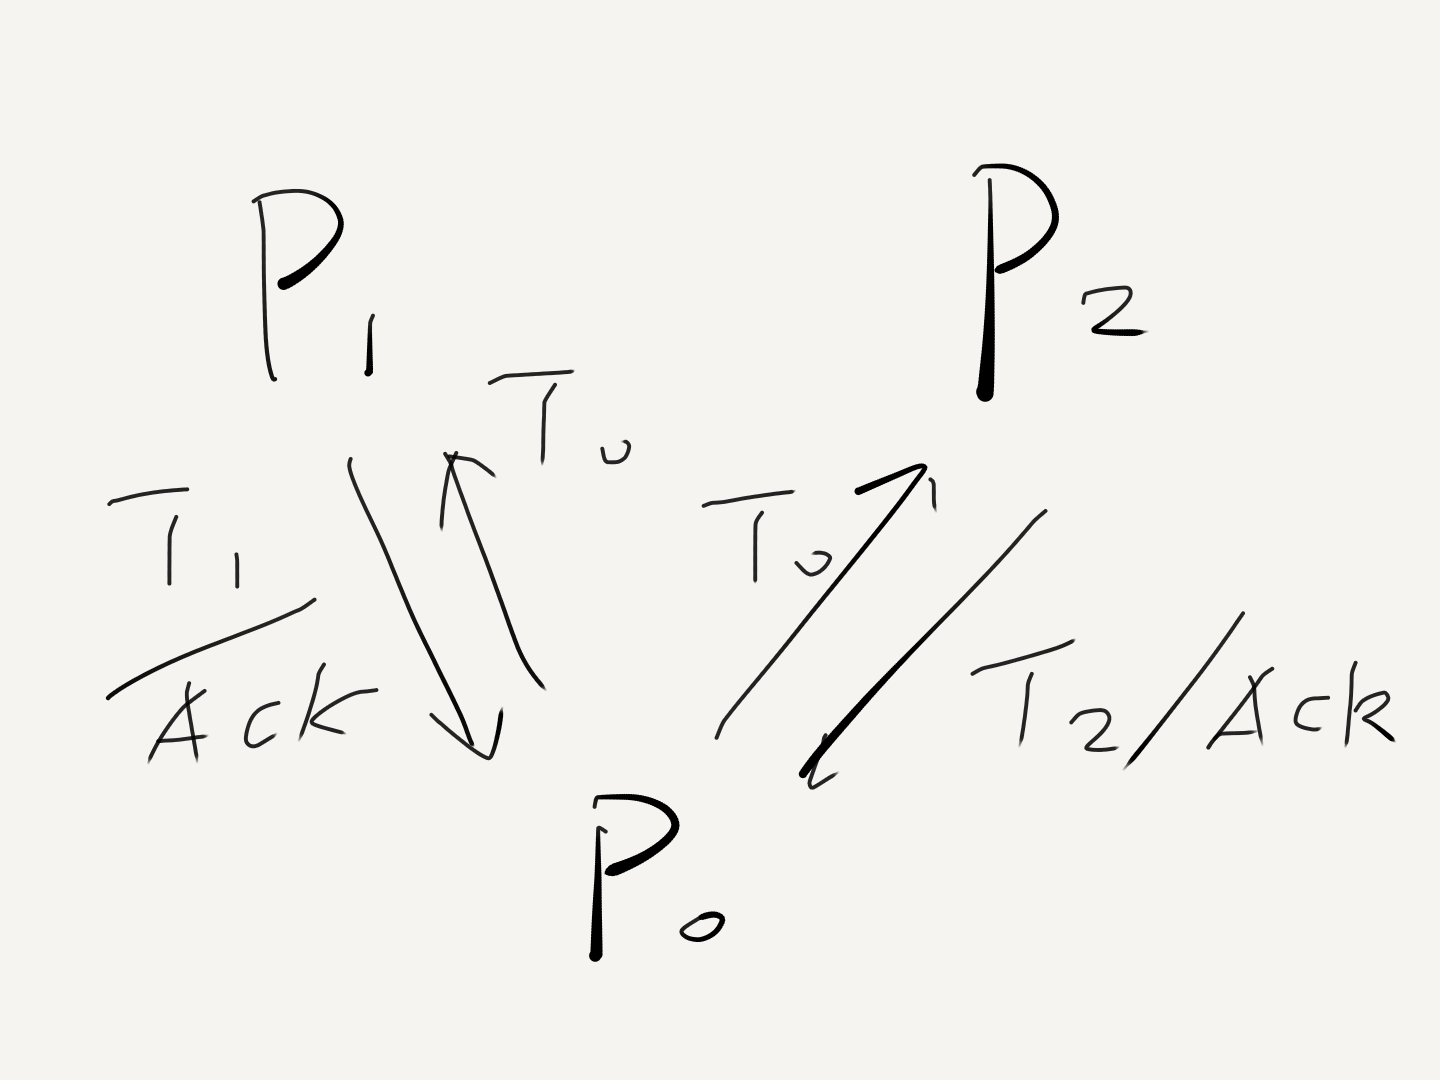 P1
P2
T0
T1
/
Ack
T0
T2/Ack
P0